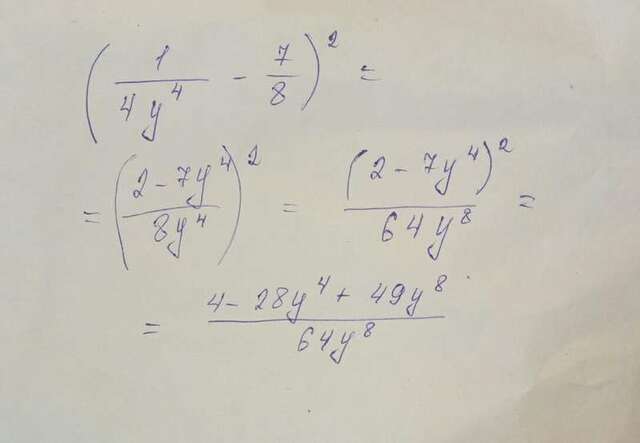 (1/(4y⁴) - 7/8)² =
= ((2-7y⁴)/(8y⁴))² = (2-7y⁴)²/(64y⁸) =
= (4-28y⁴+49y⁸)/(64y⁸)